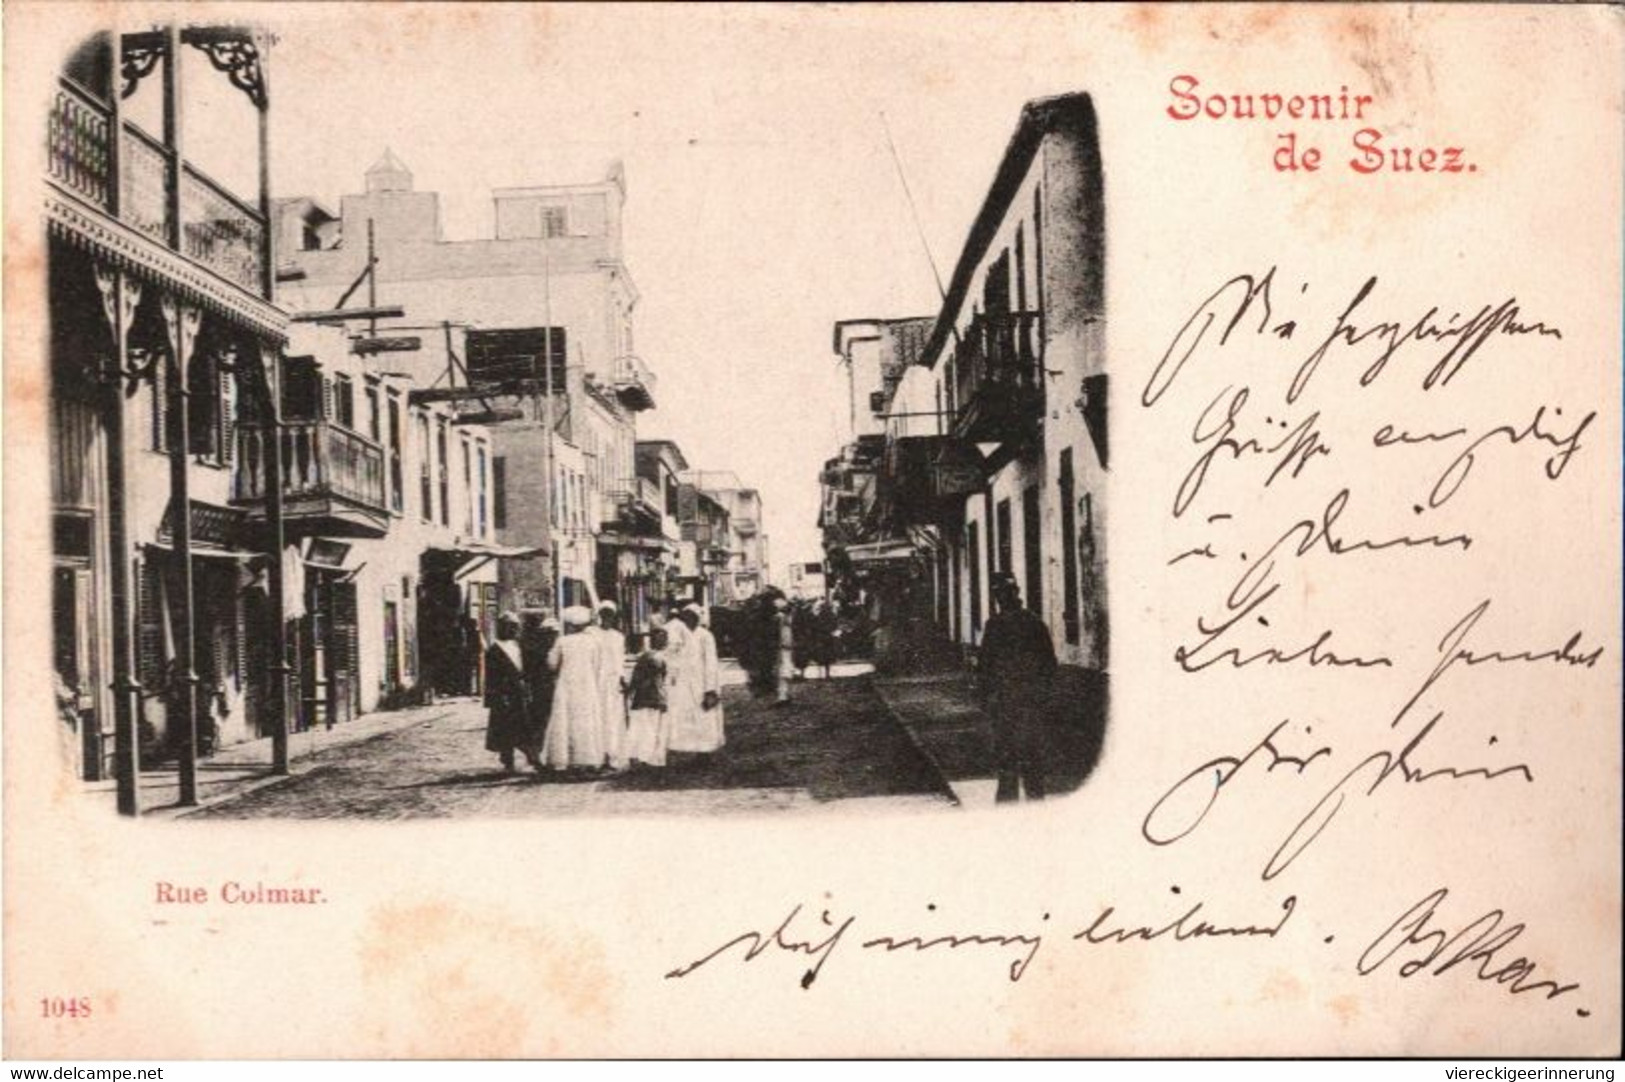 Souvenir
de Suez.
Die herzlichsten
Grüsse an Dich
u. Deine
Lieben sendet
Dir Dein
Dich innig liebend.
Rue Colmar.
1048
www.delcampe.net
viereckigeerinnerung